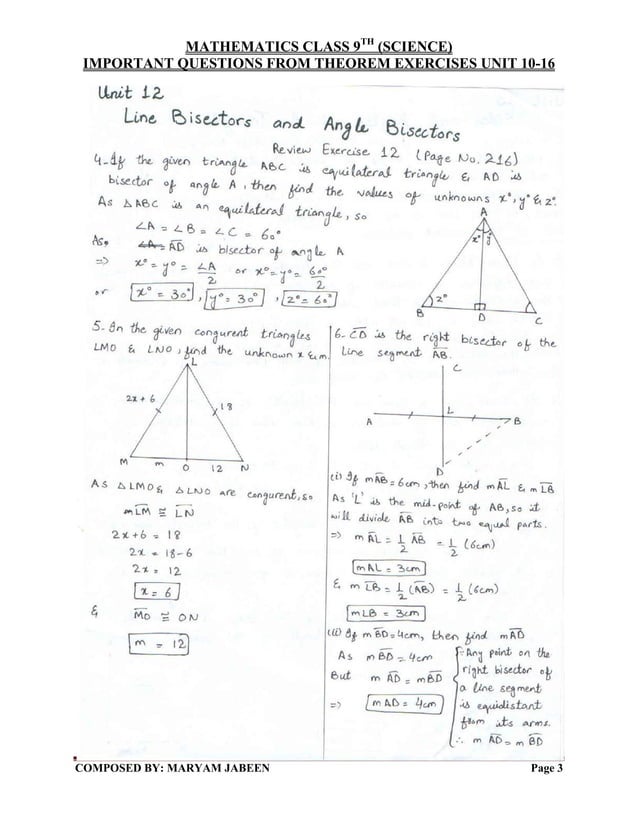 MATHEMATICS CLASS 9TH (SCIENCE)
IMPORTANT QUESTIONS FROM THEOREM EXERCISES UNIT 10-16
Unit 12
Line Bisectors and Angle Bisectors
Review Exercise 12 (Page No. 216)
4-If the given triangle ABC is equilateral triangle & AD is
bisector of angle A, then find the values of unknowns x°, y° & z°.
As △ABC is an equilateral triangle, so
∠A = ∠B = ∠C = 60°
As, ∠A = AD is bisector of angle A
=> x° = y° = ∠A/2 or x° = y° = 60°/2
or x° = 30°, y° = 30°, z° = 60°
A
x° y
z°
B D C
5-In the given congurent triangles
LMO & LNO, find the unknown x & m.
L
2x+6 18
M m O 12 N
As △LMO & △LNO are congurent, so
mLM ≅ LN
2x+6 = 18
2x = 18-6
2x = 12
x = 6
& MO ≅ ON
m = 12
6- CD is the right bisector of the
line segment AB.
C
A L B
D
(i) If mAB = 6cm, then find mAL & mLB
As 'L' is the mid-point of AB, so it
will divide AB into two equal parts.
=> mAL = 1/2 AB = 1/2 (6cm)
mAL = 3cm
& mLB = 1/2 (AB) = 1/2 (6cm)
mLB = 3cm
(ii) If mBD = 4cm, then find mAD
As mBD = 4cm
But mAD = mBD
=> mAD = 4cm
∵ Any point on the
right bisector of
a line segment
is equidistant
from its arms.
∴ mAD = mBD
COMPOSED BY: MARYAM JABEEN Page 3